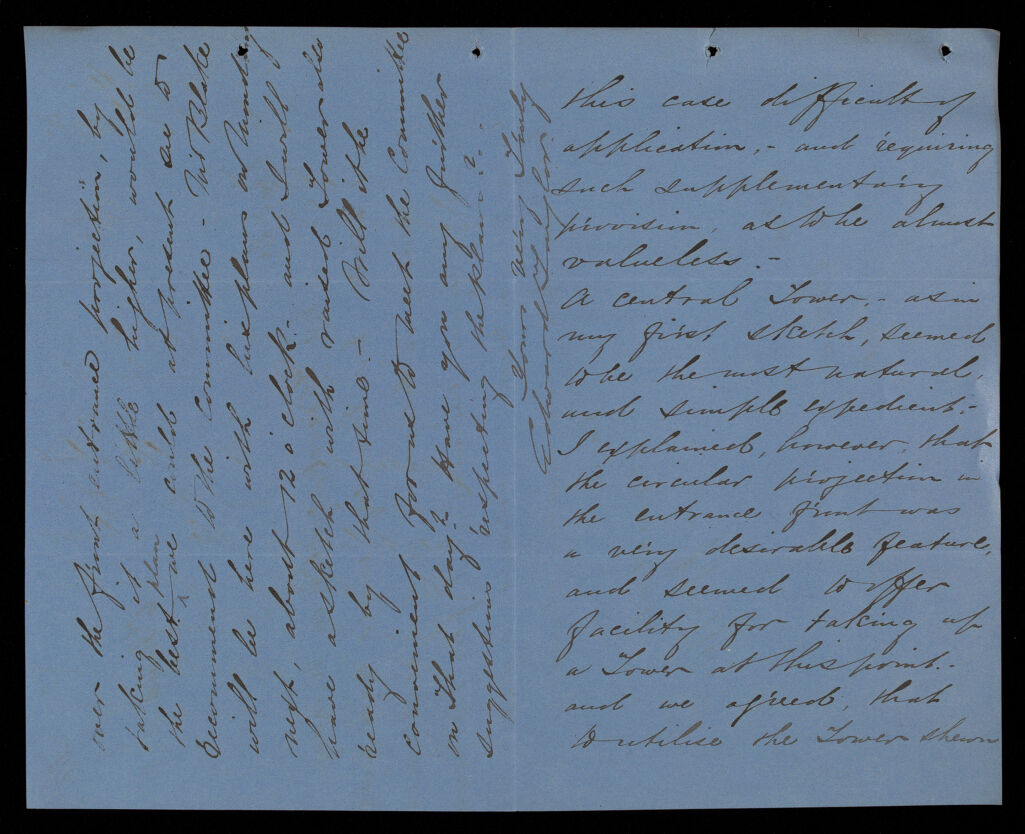 this case difficult of
application, - and requiring
such supplementary
provision, as to be almost
valueless. -
A central Tower, - as in
my first sketch, seemed
to be the most natural,
and simple expedient. -
I explained, however, that
the circular projection in
the entrance front was
a very desirable feature,
and seemed to offer
facility for taking up
a Tower at this point. -
and we agreed, that
to utilise the Tower shewn
over the front entrance projection, by
taking it a little higher, would be
the best plan we could at present see to
recommend to the Committee - Mr Blake
will be here with his plans on
next, about 12 o'clock - and I will
have a sketch with raised Tower also
ready by that time. - Will it be
convenient for us to meet the Committee
on that day? - Have you any further
suggestions respecting the plans? -
Yours very Truly
Edward